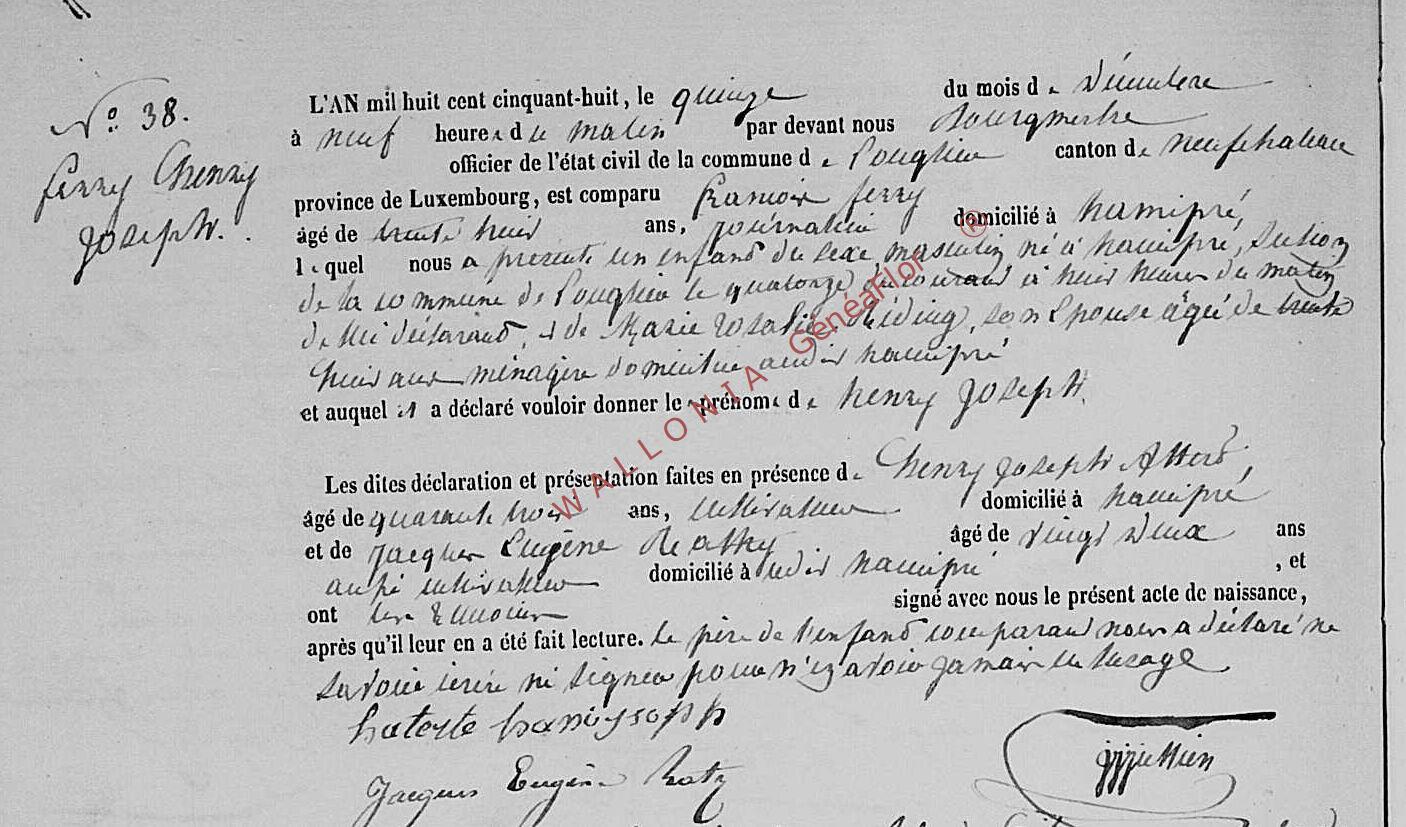 N° 38.
ferry henry
Joseph.
L'AN mil huit cent cinquant-huit, le quinze du mois de Décembre
à neuf heures du matin par devant nous Bourgmestre
officier de l'état civil de la commune de Longlier canton de neufchateau
province de Luxembourg, est comparu francois ferry
âgé de trente huit ans, journalier domicilié à hamipré,
lequel nous a présenté un enfant du sexe masculin né à hamipré, section
de la commune de Longlier le quatorze du courant à huit heures du matin
de lui déclarant, et de Marie rosalie, son Epouse âgée de trente
huit ans ménagère domiciliée audit hamipré
et auquel il a déclaré vouloir donner les prénoms de henry Joseph.
Les dites déclaration et présentation faites en présence de henry Joseph
âgé de quarante trois ans, cultivateur domicilié à hamipré
et de Jacques Eugène âgé de vingt deux ans
aussi cultivateur domicilié à udit hamipré, et
ont les témoins signé avec nous le présent acte de naissance,
après qu'il leur en a été fait lecture. Le père de l'enfant comparant nous a déclaré ne
savoir écrire ni signer pour n'en avoir jamais eu lusage
Jacques Eugène
WALLONIA GénéaFlor ®